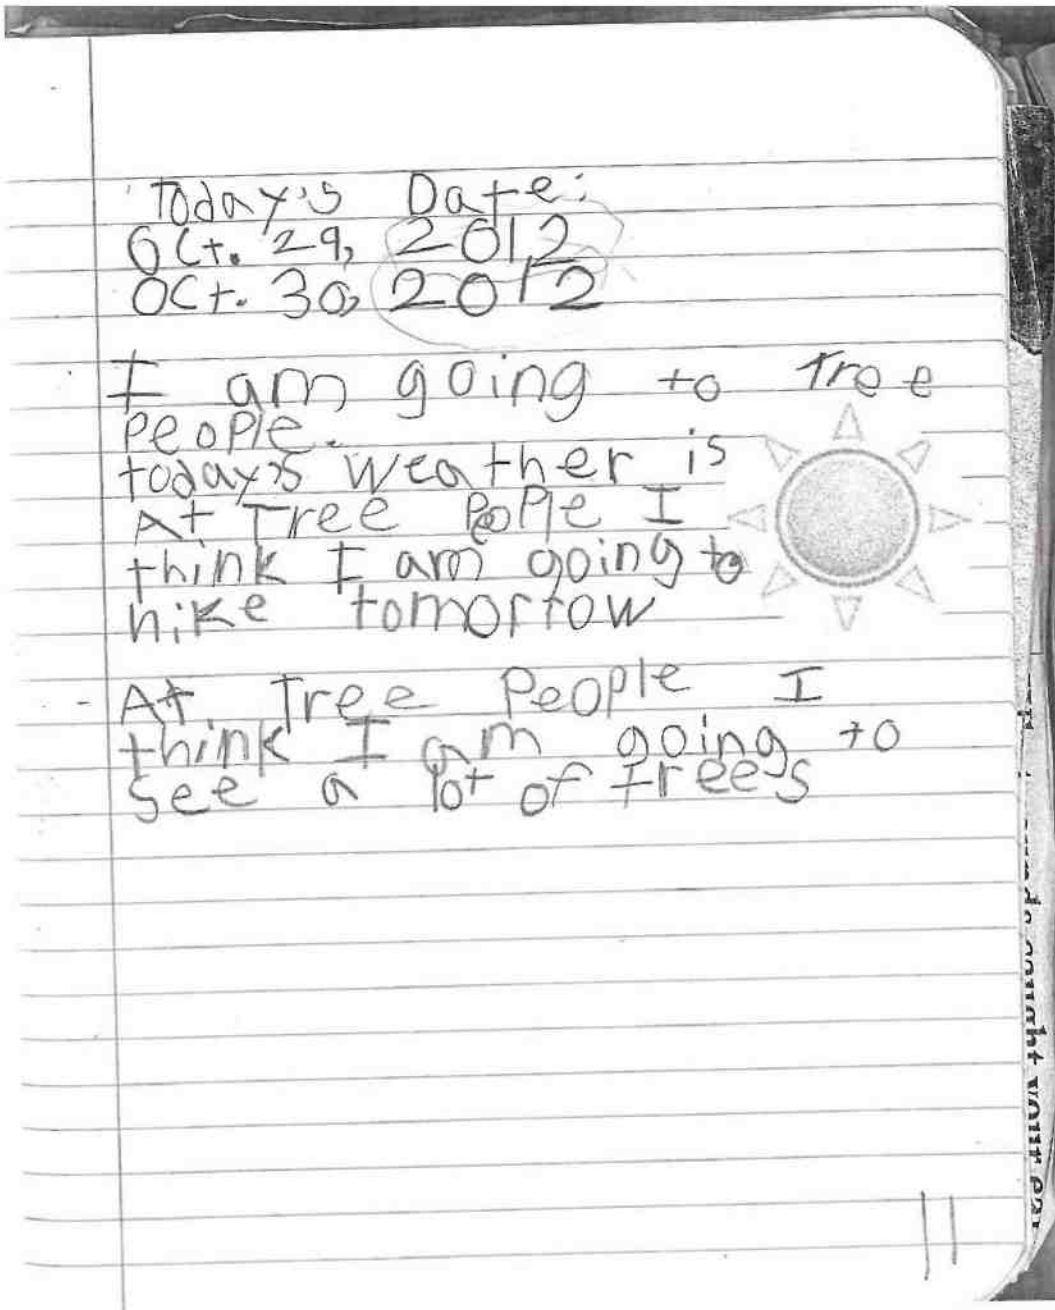 Today's Date:
Oct. 29, 2012
Oct. 30, 2012
I am going to Tree
People.
today's weather is
At Tree People I
think I am going to
hike tomorrow
At Tree People I
think I am going to
see a lot of trees
caught your
11